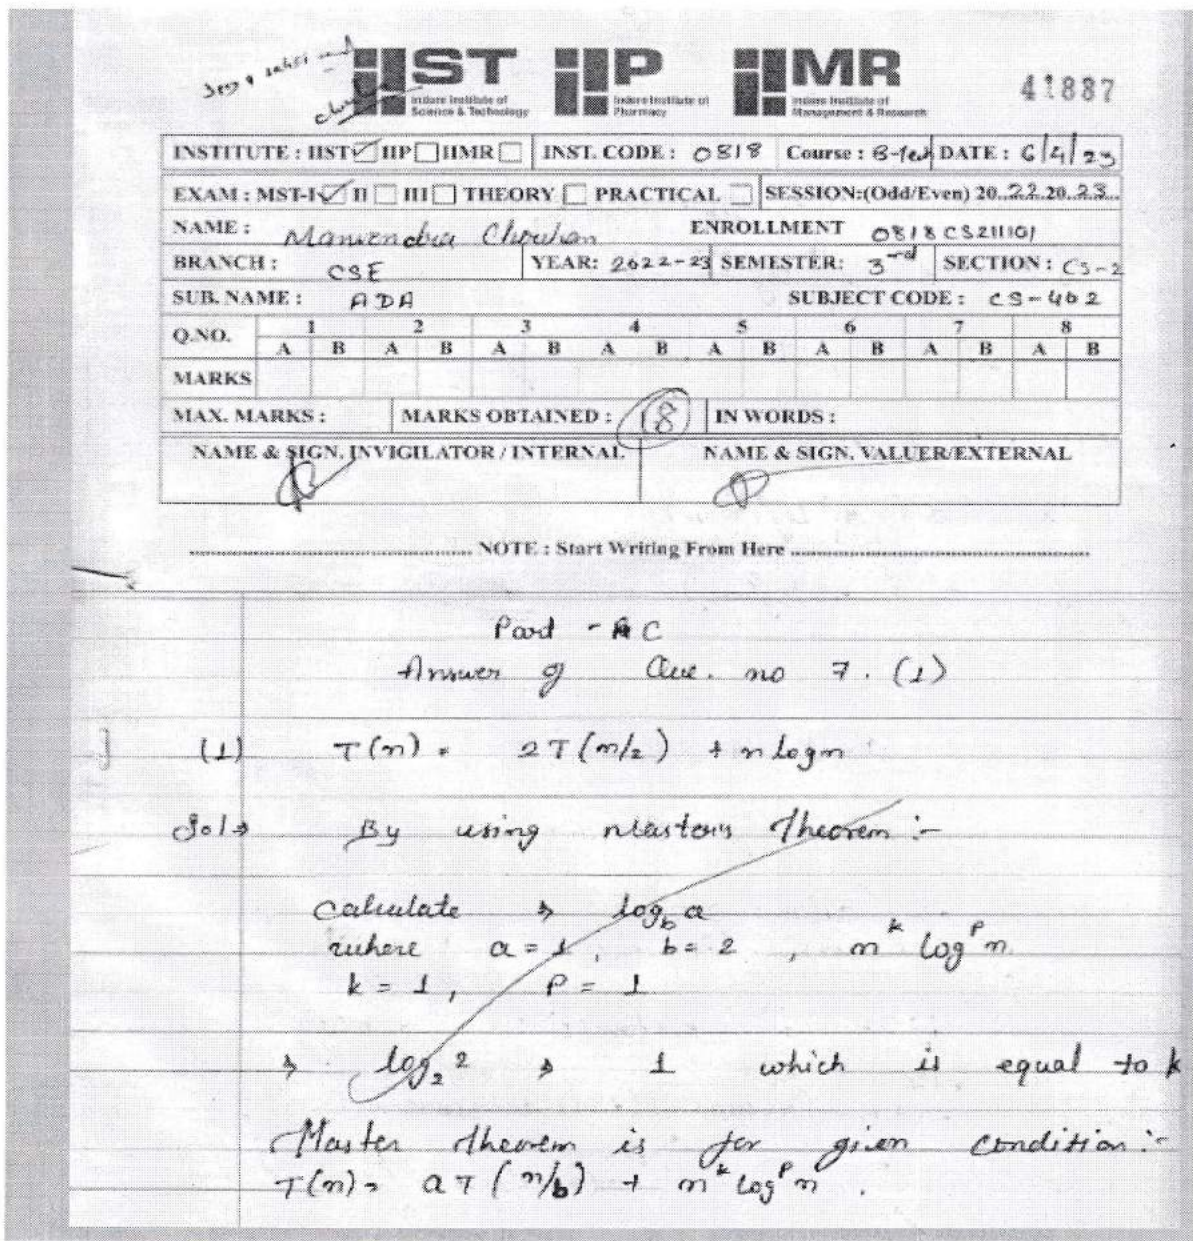 IIST IIP IIMR
Indore Institute of Science & Technology
Indore Institute of Pharmacy
Indore Institute of Management & Research
41887
INSTITUTE : IIST IIP IIMR INST. CODE : 0818 Course : B-Tech DATE : 6/4/23
EXAM : MST-I II III THEORY PRACTICAL SESSION:(Odd/Even) 20..22.20..23..
NAME : Manvendra Chouhan ENROLLMENT 0818CS211101
BRANCH : CSE YEAR: 2022-23 SEMESTER: 3rd SECTION : CS-2
SUB. NAME : ADA SUBJECT CODE : CS-402
Q.NO. 1 2 3 4 5 6 7 8
A B A B A B A B A B A B A B A B
MARKS
MAX. MARKS : MARKS OBTAINED : 18 IN WORDS :
NAME & SIGN. INVIGILATOR / INTERNAL NAME & SIGN. VALUER/EXTERNAL
NOTE : Start Writing From Here
Part - C
Answer of Que. no 7. (1)
(1) T(n) = 2T(n/2) + n log n
Sol→ By using Master's Theorem :-
calculate → log_b a
where a = 1, b = 2, n^k log^p n
k = 1, P = 1
→ log_2 2 → 1 which is equal to k
Master theorem is for given condition :-
T(n) = aT(n/b) + n^k log^p n.